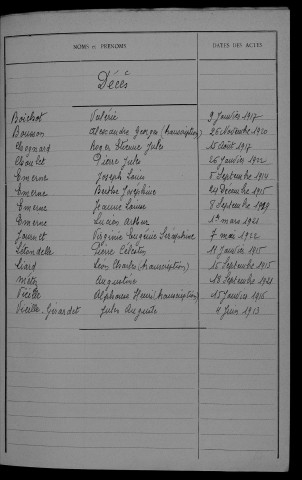 NOMS et PRÉNOMS DATES DES ACTES
Décès
Boichot Valérie 9 Janvier 1917
Bousson Alexandre Georges (transcription) 26 Novembre 1920
Cugnard Roger Etienne Jules 15 Août 1917
Pierre Jules 26 Janvier 1922
Emerne Joseph Louis 5 Septembre 1914
Emerne Berthe Joséphine 24 Décembre 1915
Emerne Jeanne Louise 8 Septembre
Emerne Lucien Arthur 1er mars 1921
Journet Virginie Eugénie Séraphine 7 mai 1922
Pierre Célestin 11 Janvier 1915
Liard Léon Charles (transcription) 15 Septembre 1915
Augustine 18 Septembre 1921
Vieille Alphonse Henri (transcription) 15 Janvier 1915
Vieille-Girardet Jules Auguste 4 Juin 1913